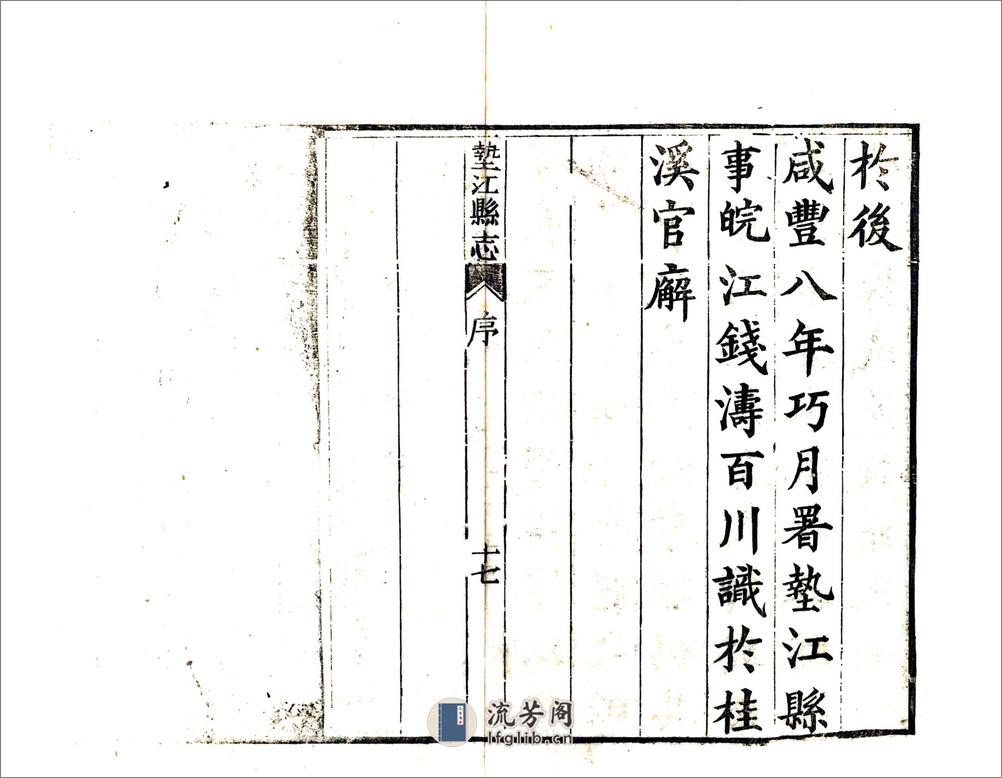 於後
咸豐八年巧月署墊江縣
事皖江錢濤百川識於桂
溪官廨
墊江縣志
序
十七
流芳阁
lfglib.cn